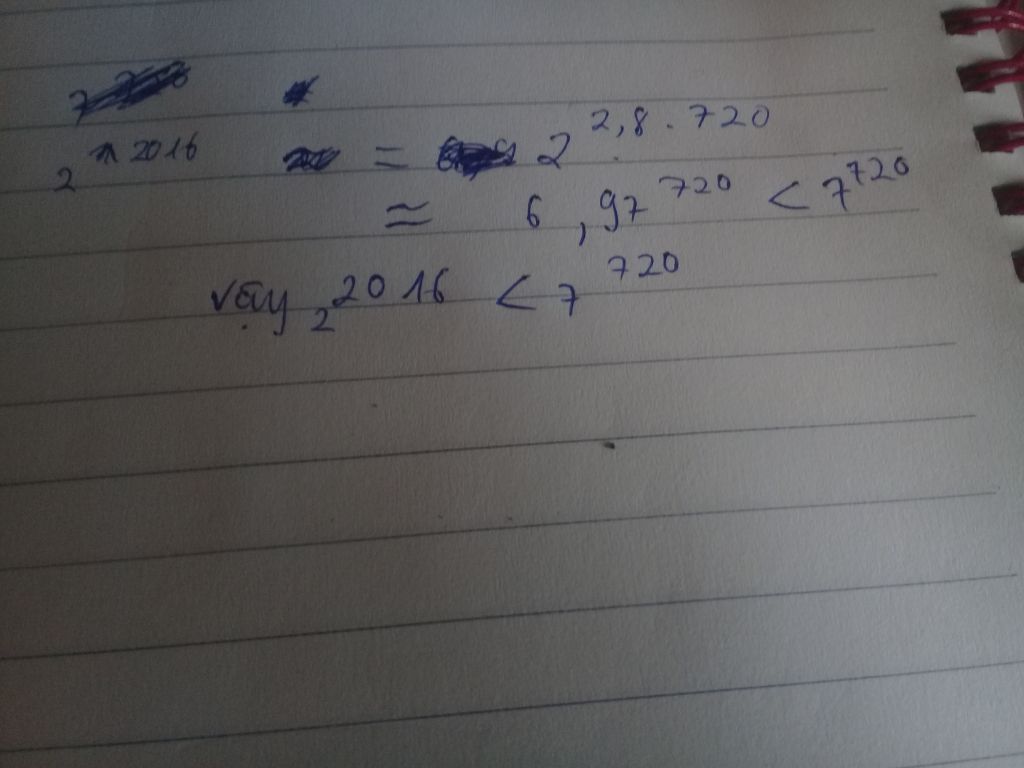 2^2016 = 2^2,8.720
≈ 6,97^720 < 7^720
vậy 2^2016 < 7^720